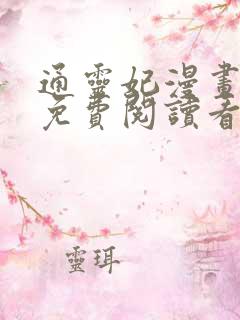 通靈妃漫畫
免費閱讀看
靈珥